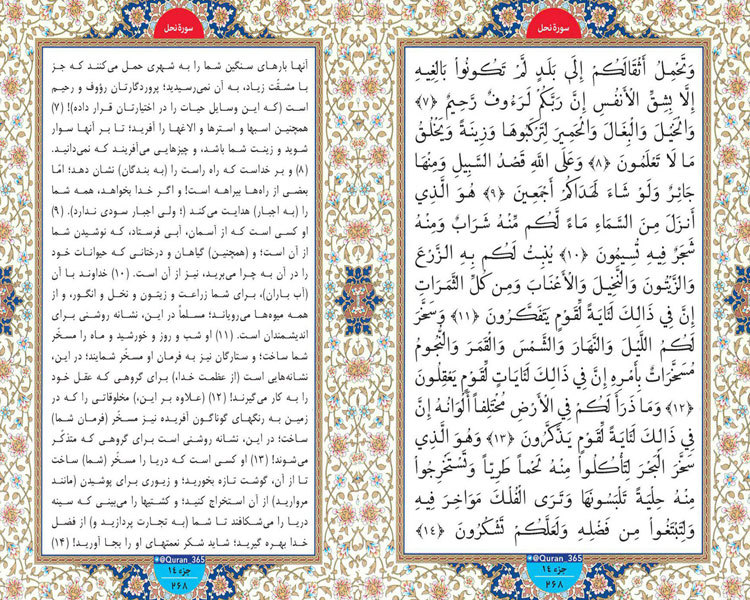 سورهٔ نحل
وَتَحْمِلُ أَثْقَالَكُمْ إِلَى بَلَدٍ لَّمْ تَكُونُواْ بَالِغِيهِ
إِلَّا بِشِقِّ الْأَنفُسِ إِنَّ رَبَّكُمْ لَرَءُوفٌ رَّحِيمٌ ﴿۷﴾
وَالْخَيْلَ وَالْبِغَالَ وَالْحَمِيرَ لِتَرْكَبُوهَا وَزِينَةً وَيَخْلُقُ
مَا لَا تَعْلَمُونَ ﴿۸﴾ وَعَلَى اللهِ قَصْدُ السَّبِيلِ وَمِنْهَا
جَائِرٌ وَلَوْ شَاءَ لَهَدَاكُمْ أَجْمَعِينَ ﴿۹﴾ هُوَ الَّذِي
أَنزَلَ مِنَ السَّمَاءِ مَاءً لَّكُم مِّنْهُ شَرَابٌ وَمِنْهُ
شَجَرٌ فِيهِ تُسِيمُونَ ﴿۱۰﴾ يُنبِتُ لَكُم بِهِ الزَّرْعَ
وَالزَّيْتُونَ وَالنَّخِيلَ وَالْأَعْنَابَ وَمِن كُلِّ الثَّمَرَاتِ
إِنَّ فِي ذَالِكَ لَآيَةً لِّقَوْمٍ يَتَفَكَّرُونَ ﴿۱۱﴾ وَسَخَّرَ
لَكُمُ اللَّيْلَ وَالنَّهَارَ وَالشَّمْسَ وَالْقَمَرَ وَالنُّجُومُ
مُسَخَّرَاتٌ بِأَمْرِهِ إِنَّ فِي ذَالِكَ لَآيَاتٍ لِّقَوْمٍ يَعْقِلُونَ
﴿۱۲﴾ وَمَا ذَرَأَ لَكُمْ فِي الْأَرْضِ مُخْتَلِفاً أَلْوَانُهُ إِنَّ
فِي ذَالِكَ لَآيَةً لِّقَوْمٍ يَذَّكَّرُونَ ﴿۱۳﴾ وَهُوَ الَّذِي
سَخَّرَ الْبَحْرَ لِتَأْكُلُواْ مِنْهُ لَحْماً طَرِيّاً وَتَسْتَخْرِجُواْ
مِنْهُ حِلْيَةً تَلْبَسُونَهَا وَتَرَى الْفُلْكَ مَوَاخِرَ فِيهِ
وَلِتَبْتَغُواْ مِن فَضْلِهِ وَلَعَلَّكُمْ تَشْكُرُونَ ﴿۱۴﴾
@Quran_365
جزء ۱۴
۲۶۸
سورهٔ نحل
آنها بارهای سنگین شما را به شهری حمل می‌کنند که جز
با مشقّت زیاد، به آن نمی‌رسیدید؛ پروردگارتان رؤوف و رحیم
است (که این وسایل حیات را در اختیارتان قرار داده)! (۷)
همچنین اسبها و استرها و الاغها را آفرید؛ تا بر آنها سوار
شوید و زینت شما باشد، و چیزهایی می‌آفریند که نمی‌دانید.
(۸) و بر خداست که راه راست را (به بندگان) نشان دهد؛ امّا
بعضی از راه‌ها بیراهه است! و اگر خدا بخواهد، همه شما
را (به اجبار) هدایت می‌کند (؛ ولی اجبار سودی ندارد). (۹)
او کسی است که از آسمان، آبی فرستاد، که نوشیدن شما
از آن است؛ و (همچنین) گیاهان و درختانی که حیوانات خود
را در آن به چرا می‌برید، نیز از آن است. (۱۰) خداوند با آن
(آب باران)، برای شما زراعت و زیتون و نخل و انگور، و از
همه میوه‌ها می‌رویاند؛ مسلماً در این، نشانه روشنی برای
اندیشمندان است. (۱۱) او شب و روز و خورشید و ماه را مسخّر
شما ساخت؛ و ستارگان نیز به فرمان او مسخّر شمایند؛ در این،
نشانه‌هایی است (از عظمت خدا،) برای گروهی که عقل خود
را به کار می‌گیرند! (۱۲) (علاوه بر این،) مخلوقاتی را که در
زمین به رنگهای گوناگون آفریده نیز مسخّر (فرمان شما)
ساخت؛ در این، نشانه روشنی است برای گروهی که متذکّر
می‌شوند! (۱۳) او کسی است که دریا را مسخّر (شما) ساخت
تا از آن، گوشت تازه بخورید؛ و زیوری برای پوشیدن (مانند
مروارید) از آن استخراج کنید؛ و کشتیها را می‌بینی که سینه
دریا را می‌شکافند تا شما (به تجارت پردازید و) از فضل
خدا بهره گیرید؛ شاید شکر نعمتهای او را بجا آورید! (۱۴)
@Quran_365
جزء ۱۴
۲۶۸